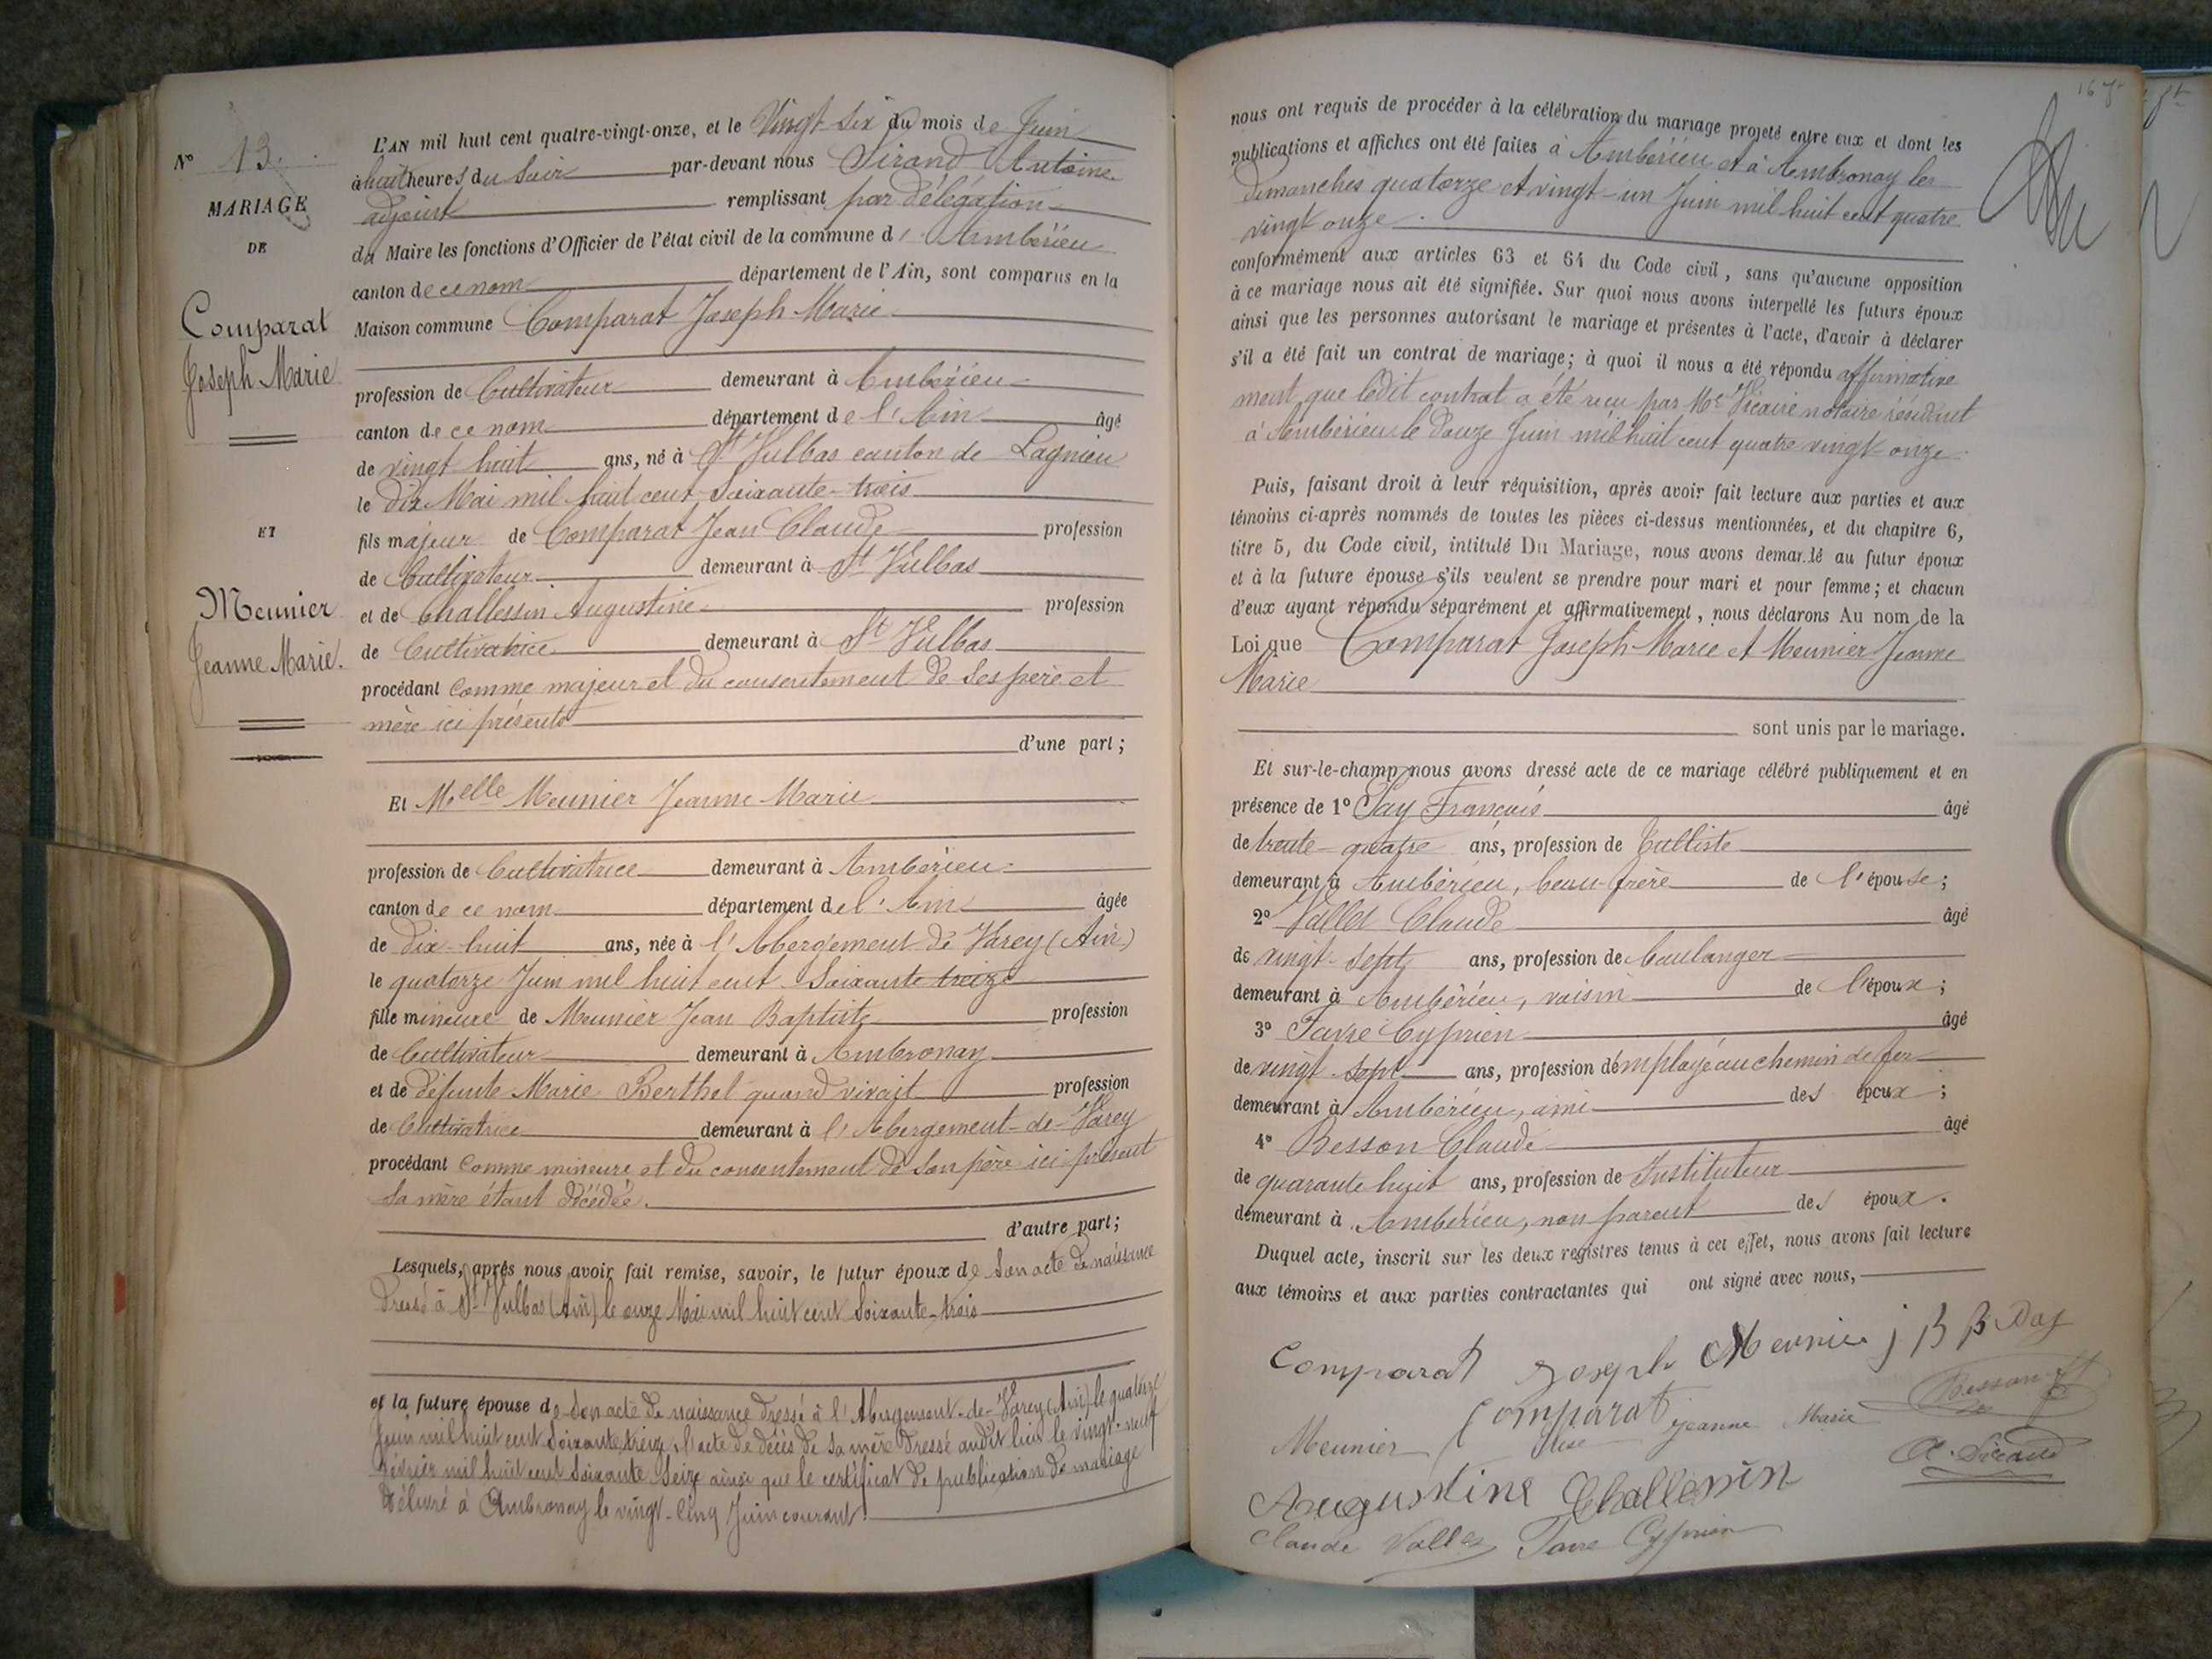 N° 13.
MARIAGE
DE
Comparat
Joseph Marie
ET
Meunier
Jeanne Marie.
L'AN mil huit cent quatre-vingt-onze, et le Vingt six du mois de Juin
à huit heures du soir par-devant nous Sirand Antoine
adjoint remplissant par délégation
du Maire les fonctions d'Officier de l'état civil de la commune d' Ambérieu
canton de ce nom département de l'Ain, sont comparus en la
Maison commune Comparat Joseph Marie
profession de Cultivateur demeurant à Ambérieu
canton de ce nom département de l'Ain âgé
de vingt huit ans, né à St Vulbas canton de Lagnieu
le dix Mai mil huit cent soixante-trois
fils majeur de Comparat Jean Claude profession
de Cultivateur demeurant à St Vulbas
et de Challessin Augustine profession
de Cultivatrice demeurant à St Vulbas
procédant comme majeur et du consentement de ses père et
mère ici présents
d'une part;
Et Melle Meunier Jeanne Marie
profession de Cultivatrice demeurant à Ambérieu
canton de ce nom département de l'Ain âgée
de dix-huit ans, née à l'Abergement de Varey (Ain)
le quatorze Juin mil huit cent soixante treize
fille mineure de Meunier Jean Baptiste profession
de Cultivateur demeurant à Ambronay
et de défunte Marie Berthel quand vivait profession
de Cultivatrice demeurant à l'Abergement-de-Varey
procédant comme mineure et du consentement de son père ici présent
sa mère étant décédée.
d'autre part;
Lesquels, après nous avoir fait remise, savoir, le futur époux de son acte de naissance
dressé à St Vulbas (Ain) le onze Mai mil huit cent soixante-trois
et la future épouse de son acte de naissance dressé à l'Abergement-de-Varey (Ain) le quatorze
Juin mil huit cent soixante treize, l'acte de décès de sa mère dressé audit lieu le vingt-neuf
février mil huit cent soixante seize ainsi que le certificat de publication de mariage
délivré à Ambronay le vingt-cinq Juin courant.
nous ont requis de procéder à la célébration du mariage projeté entre eux et dont les
publications et affiches ont été faites à Ambérieu et à Ambronay les
dimanches quatorze et vingt-un Juin mil huit cent quatre
vingt onze.
conformément aux articles 63 et 64 du Code civil, sans qu'aucune opposition
à ce mariage nous ait été signifiée. Sur quoi nous avons interpellé les futurs époux
ainsi que les personnes autorisant le mariage et présentes à l'acte, d'avoir à déclarer
s'il a été fait un contrat de mariage; à quoi il nous a été répondu affirmative
ment que ledit contrat a été reçu par Me Vicaire notaire résidant
à Ambérieu le douze Juin mil huit cent quatre vingt onze
Puis, faisant droit à leur réquisition, après avoir fait lecture aux parties et aux
témoins ci-après nommés de toutes les pièces ci-dessus mentionnées, et du chapitre 6,
titre 5, du Code civil, intitulé Du Mariage, nous avons demandé au futur époux
et à la future épouse s'ils veulent se prendre pour mari et pour femme; et chacun
d'eux ayant répondu séparément et affirmativement, nous déclarons Au nom de la
Loi que Comparat Joseph Marie et Meunier Jeanne
Marie
sont unis par le mariage.
Et sur-le-champ nous avons dressé acte de ce mariage célébré publiquement et en
présence de 1° François âgé
de trente-quatre ans, profession de Tulliste
demeurant à Ambérieu, beau-frère de l'épouse;
2° Vallet Claude âgé
de vingt-sept ans, profession de boulanger
demeurant à Ambérieu, voisin de l'époux;
3° Favre Cyprien âgé
de vingt-sept ans, profession d'employé au chemin de fer
demeurant à Ambérieu, ami des époux;
4° Besson Claude âgé
de quarante huit ans, profession de Instituteur
demeurant à Ambérieu, non parent des époux.
Duquel acte, inscrit sur les deux registres tenus à cet effet, nous avons fait lecture
aux témoins et aux parties contractantes qui ont signé avec nous,
Comparat Joseph Meunier j B
Comparat Besson
Meunier Jeanne Marie
A. Sirand
Augustine Challessin
Claude Vallet Favre Cyprien